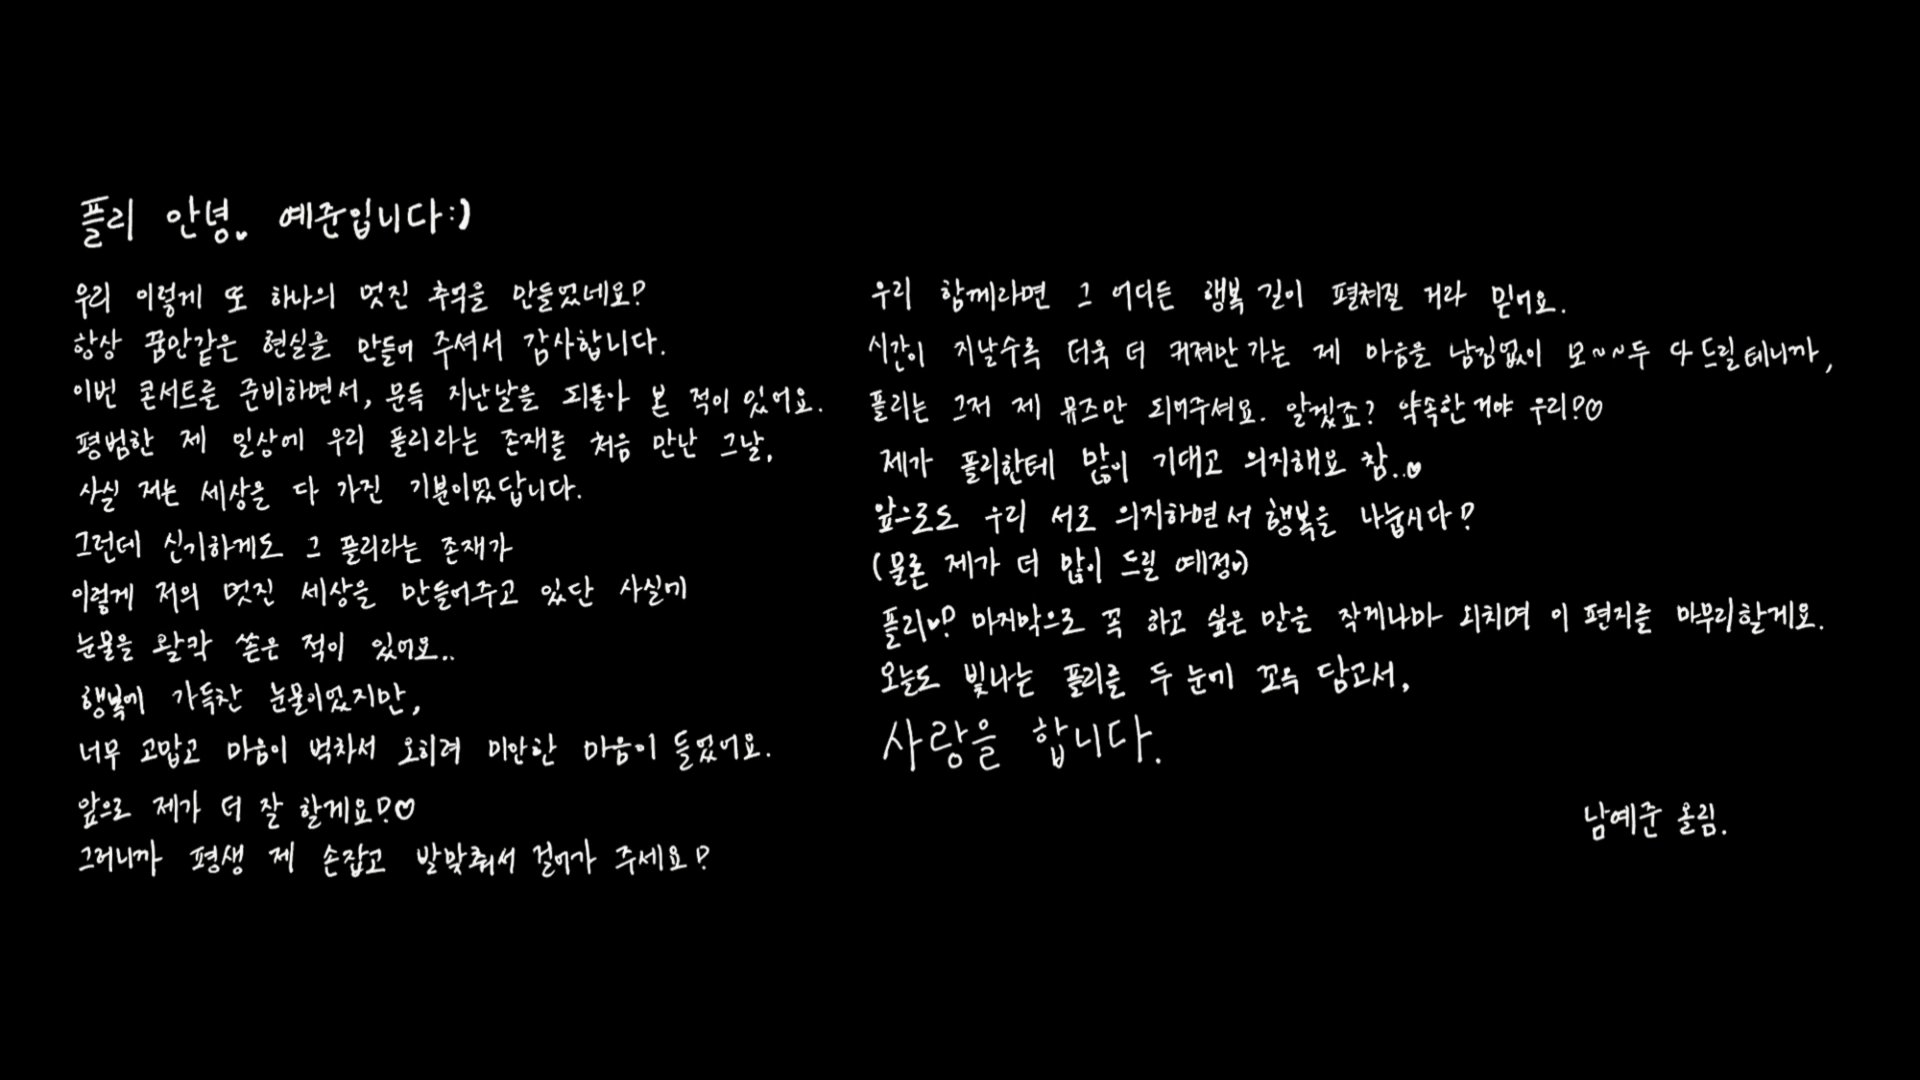 플리 안녕. 예준입니다:)
우리 이렇게 또 하나의 멋진 추억을 만들었네요?
항상 꿈만같은 현실을 만들어 주셔서 감사합니다.
이번 콘서트를 준비하면서, 문득 지난날을 되돌아 본 적이 있어요.
평범한 제 일상에 우리 플리라는 존재를 처음 만난 그날,
사실 저는 세상을 다 가진 기분이었답니다.
그런데 신기하게도 그 플리라는 존재가
이렇게 저의 멋진 세상을 만들어주고 있단 사실에
눈물을 왈칵 쏟은 적이 있어요..
행복에 가득찬 눈물이었지만,
너무 고맙고 마음이 벅차서 오히려 미안한 마음이 들었어요.
앞으로 제가 더 잘 할게요?♡
그러니까 평생 제 손잡고 발맞춰서 걸어가 주세요?
우리 함께라면 그 어디든 행복 길이 펼쳐질 거라 믿어요.
시간이 지날수록 더욱 더 커져만 가는 제 마음을 남김없이 모~~두 다 드릴테니까,
플리는 그저 제 뮤즈만 되어주셔요. 알겠죠? 약속한거야 우리?♡
제가 플리한테 많이 기대고 의지해요 참..♥
앞으로도 우리 서로 의지하면서 행복을 나눕시다?
(물론 제가 더 많이 드릴 예정♥)
플리♥? 마지막으로 꼭 하고 싶은 말을 작게나마 외치며 이 편지를 마무리할게요.
오늘도 빛나는 플리를 두 눈에 꼬옥 담고서,
사랑을 합니다.
남예준 올림.